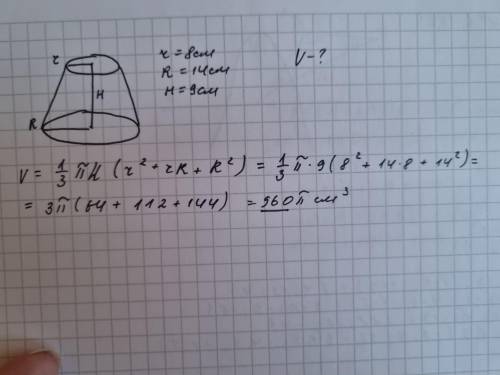 r = 8 см
R = 14 см
H = 9 см
V - ?
r
H
R
V = 1/3 πH (r² + rR + R²) = 1/3 π · 9 (8² + 14 · 8 + 14²) =
= 3π (64 + 112 + 144) = 960π см³